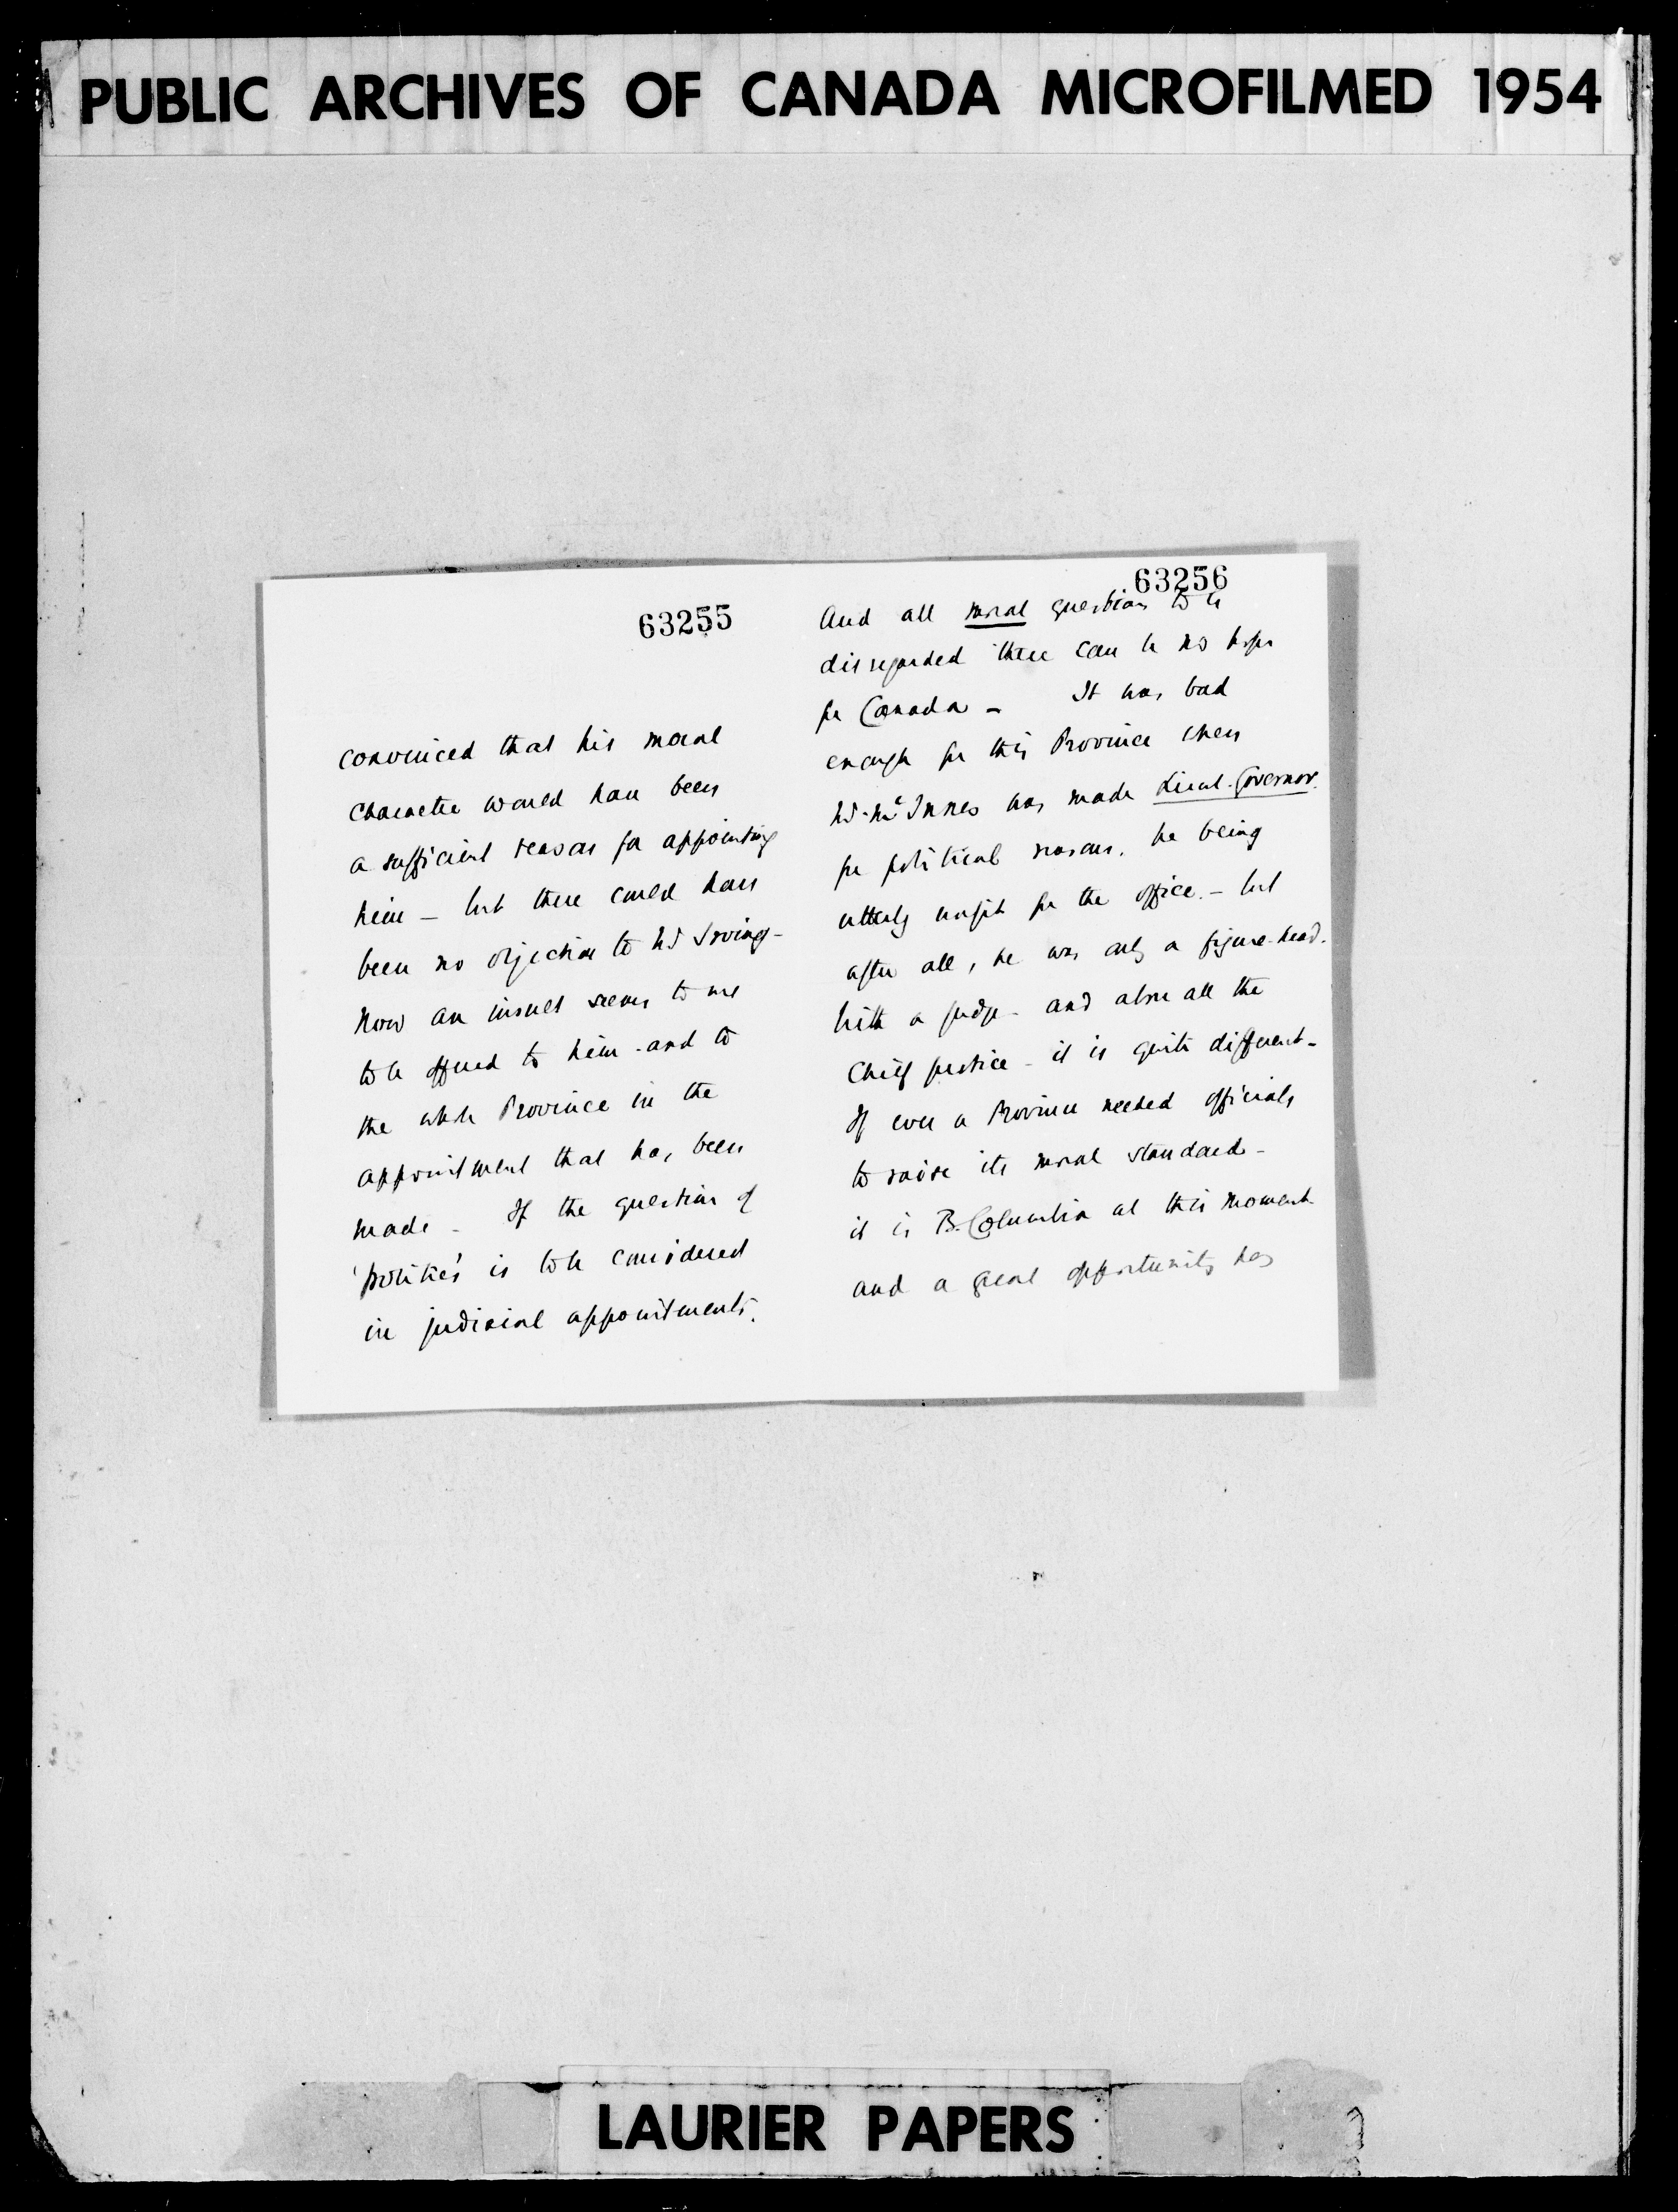 PUBLIC ARCHIVES OF CANADA MICROFILMED 1954
63255
convinced that his moral
character would have been
a sufficient reason for appointing
him – but there could have
been no objection to Mr Irving –
Now an insult seems to me
to be offered to him – and to
the whole Province in the
appointment that has been
made – If the question of
'politics' is to be considered
in judicial appointments.
63256
And all moral questions to be
disregarded there can be no hope
for Canada – It was bad
enough for this Province when
Mr McInnes was made Lieut. Governor.
for political reasons, he being
utterly unfit for the office. – but
after all, he was only a figure-head.
With a judge – and above all the
Chief Justice – it is quite different –
If ever a Province needed officials
to raise its moral standard –
it is B. Columbia at this moment.
and a great opportunity has
LAURIER PAPERS